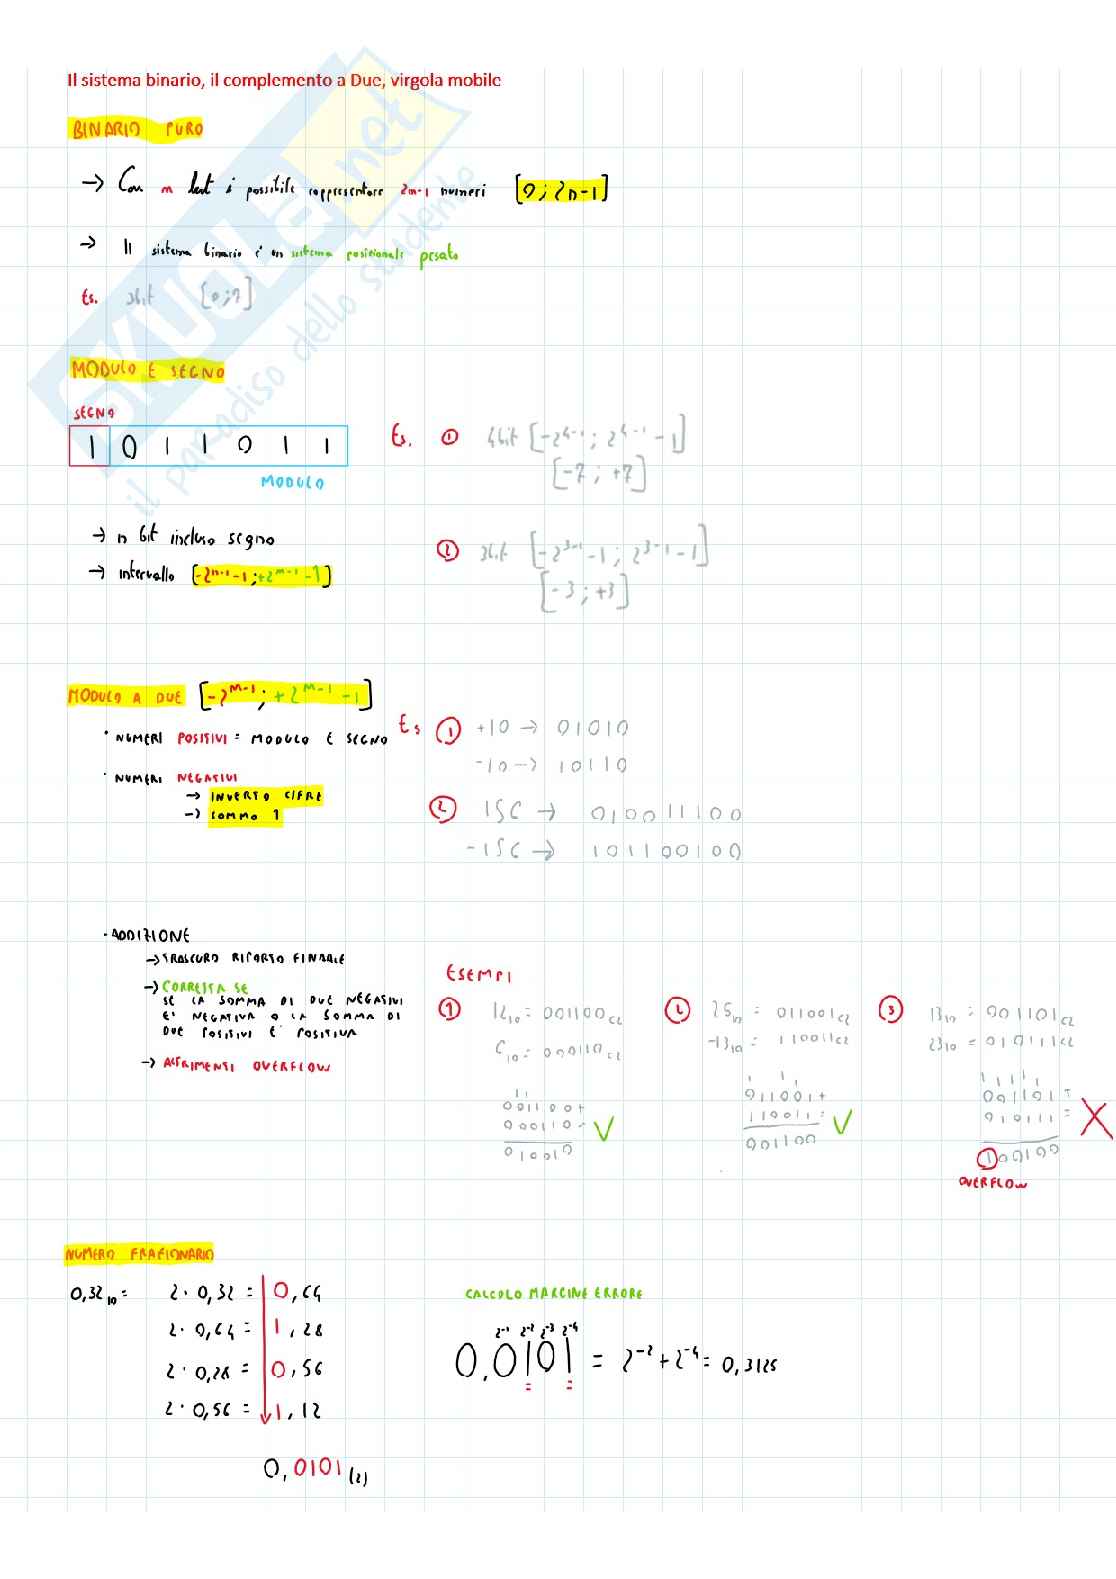 Il sistema binario, il complemento a Due, virgola mobile
BINARIO PURO
→ Con n bit è possibile rappresentare 2n-1 numeri [0; 2n-1]
→ Il sistema binario è un sistema posizionale pesato
Es. 3bit [0;7]
MODULO E SEGNO
SEGNO
1 0 1 1 0 1 1
MODULO
Es. ① 4bit [-2⁴⁻¹; 2⁴⁻¹-1]
[-7; +7]
→ n bit incluso segno
→ intervallo [-2ⁿ⁻¹-1; +2ⁿ⁻¹-1]
② 3bit [-2³⁻¹-1; 2³⁻¹-1]
[-3; +3]
MODULO A DUE [-2ⁿ⁻¹; +2ⁿ⁻¹-1]
· NUMERI POSITIVI = MODULO E SEGNO
· NUMERI NEGATIVI
→ INVERTO CIFRE
→ SOMMO 1
Es ① +10 → 01010
-10 → 10110
② 156 → 010011100
-156 → 101100100
· ADDIZIONE
→ TRASCURO RIPORTO FINALE
→ CORRETTA SE
SE LA SOMMA DI DUE NEGATIVI
E' NEGATIVA O LA SOMMA DI
DUE POSITIVI E' POSITIVA
→ ALTRIMENTI OVERFLOW
ESEMPI
① 12₁₀ = 001100 C2
6₁₀ = 000110 C2
1 1
001100+
000110=
010010 V
② 25₁₀ = 011001 C2
-13₁₀ = 110011 C2
1 1 1
011001+
110011=
001100 V
③ 13₁₀ = 001101 C2
23₁₀ = 010111 C2
1 1 1 1 1
001101+
010111=
100100 X
OVERFLOW
NUMERO FRAZIONARIO
0,32₁₀ = 2·0,32 = 0,64
2·0,64 = 1,28
2·0,28 = 0,56
2·0,56 = 1,12
0,0101 (2)
CALCOLO MARGINE ERRORE
2⁻¹ 2⁻² 2⁻³ 2⁻⁴
0,0101 = 2⁻² + 2⁻⁴ = 0,3125
SKUOLA.net
il paradiso dello studente